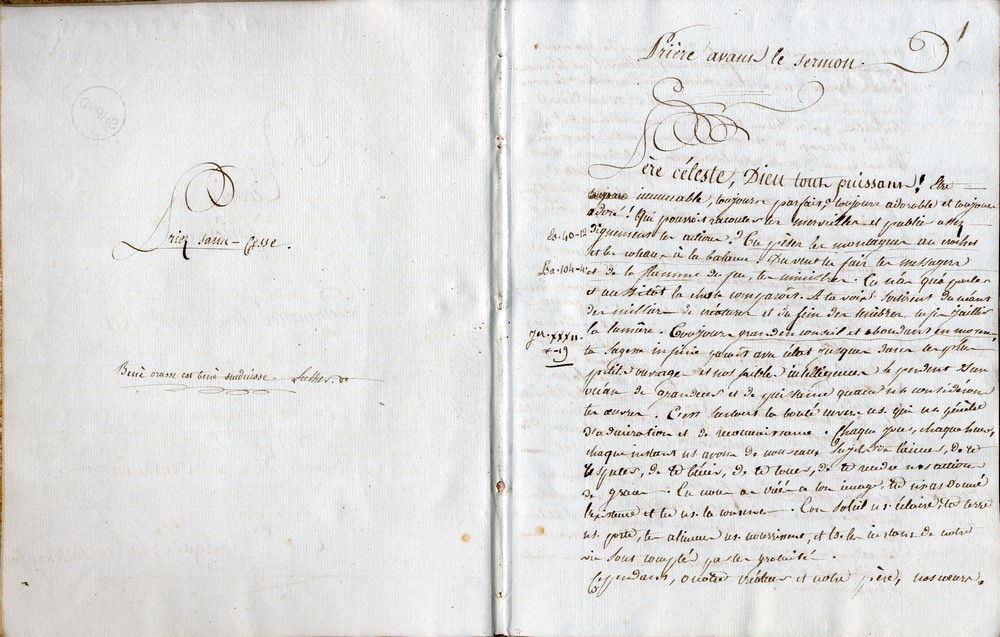 Priez sans-Cesse.
Benè orasse est benè studuisse. Luther
1
Prière avant le sermon.
Père céleste, Dieu tout puissant! Etre
immuable, toujours parfait, toujours adorable et toujours
adoré! Qui pourroit raconter tes merveilles et publier assez
Es. 40-12 dignement tes actions? Tu pèses les montagnes au crochet
et les coteaux à la balance. Du vent tu fais tes messagers
Ps. 104-4 et de la flamme du feu, tes ministres. Tu n'as qu'à parler
et aussitôt la chose comparoit. A ta voix sortirent du néant
des milliers de créatures et du sein des ténèbres tu fis jaillir
Jer. XXXII la lumière. Toujours grand en conseil et abondant en moyens
v. 19 ta sagesse infinie paroit avec éclat jusques dans tes plus
petits ouvrages et nos faibles intelligences se perdent dans
océan de grandeurs et de puissance quand ns considérons
tes œuvres. C'est surtout ta bonté envers ns qui ns pénètre
d'admiration et de reconnaissance. Chaque jour, chaque heure,
chaque instant ns avons de nouveaux sujets de t'aimer, de te
de te bénir, de te louer, de te rendre nos actions
de grace. Tu nous as créés à ton image, tu ns as donné
l'existence et tu ns la conserves. Ton soleil ns éclaire, ta terre
ns porte, tes alimens ns nourrissent, et les instans de notre
vie sont comptés par tes gratuités.
Cependant, o notre créateur et notre père, nos cœurs